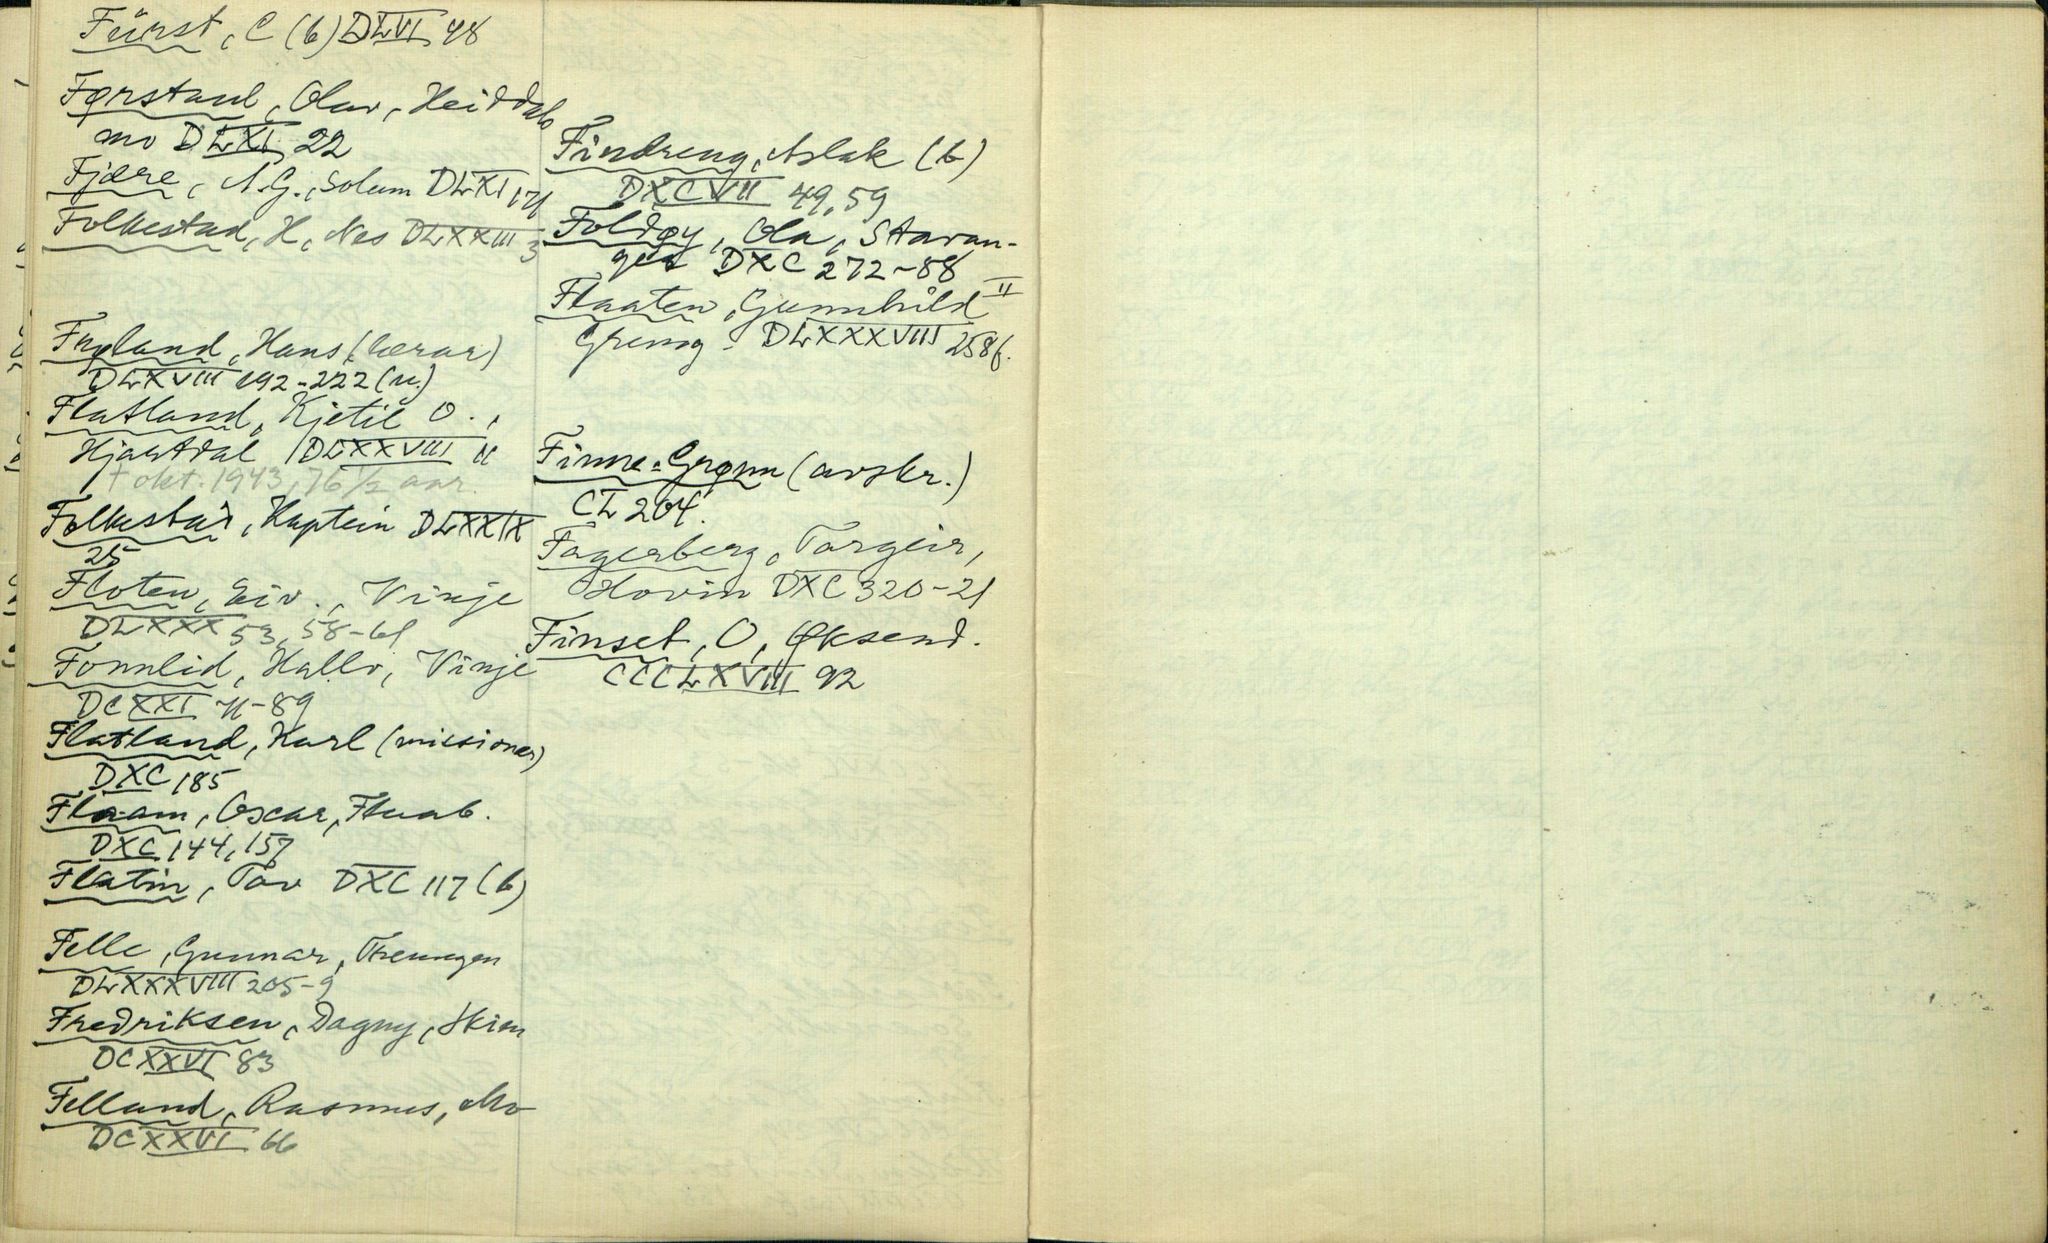 Fürst, C (b) DLVI 48
Førstaul, Olav, Heiddals
mo DLXI 22
Fjære, A. G., Solum DLXI 171
Folkestad, H, Nes DLXXIII 3
Fugland, Hans (lærar)
DLXVIII 192-222 (u.)
Flatland, Kjetil O.,
Hjartdal DLXXVIII 11
† okt. 1943, 76 1/2 aar.
Folkestad, Kaptein DLXXIX
25
Floten, Eiv., Vinje
DLXXX 53, 58-61
Fonnlid, Hallv, Vinje
DCXXI 71-89
Flatland, Karl (missionær)
DXC 185
Flaam, Oscar, Flaab.
DXC 144, 157
Flatin, Tov DXC 117 (b)
Felle, Gunnar, Treungen
DLXXXVIII 205-9
Fredriksen, Dagny, Skien
DCXXVI 83
Felland, Rasmus, Mo
DCXXVI 66
Findreng, Aslak (b)
DXCVII 49, 59
Foldøy, Ola, Stavan-
ger DXC 272-88
Flaaten, Gunnhild II
Grenig DLXXXVIII 258f.
Finne-Grønn (avskr.)
CL 204.
Fagerberg, Torgeir,
Hovin DXC 320-21
Finset, O, Øksend.
CCCLXVIII 92